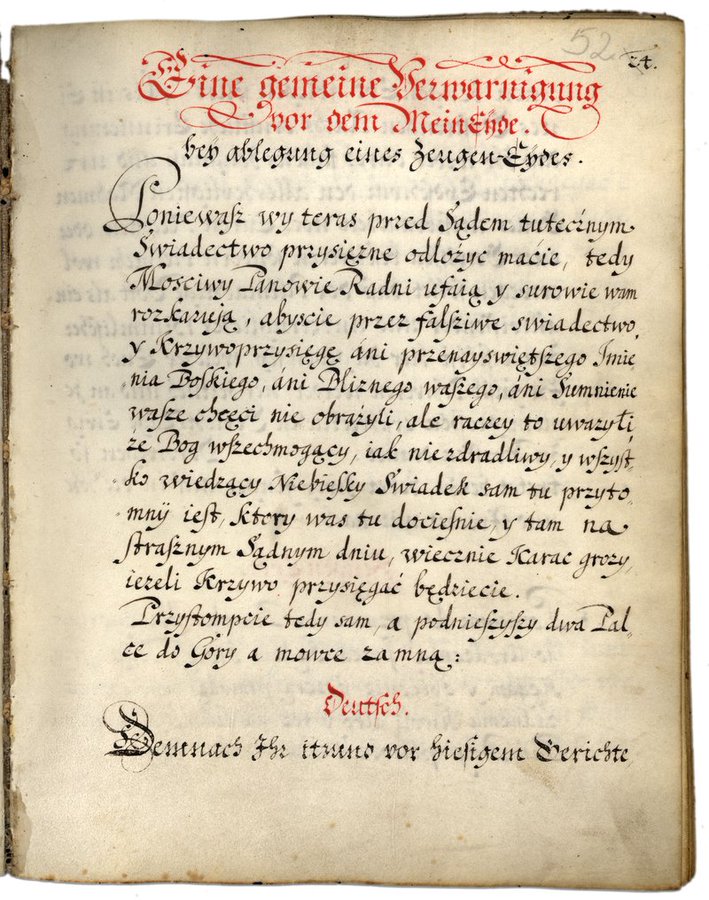 52.
24.
Eine gemeine Verwarnigung
vor dem MeinEyde.
bey ablegung eines Zeugen-Eydes.
Poniewasz wy teras przed Sądem tutecznym
Swiadectwo przysiężne odlożyc maćie, tedy
Mosciwy Panowie Radni ufaią y surowie wam
rozkazują, abyscie przez falsziwe swiadectwo,
y Krzywoprzysięgę áni przenayswiętszego Imie
nia Boskiego, áni Bliznego waszego, áni Sumnienie
wasze chcęci nie obrażyli, ale raczey to uwazyłi,
że Bog wszechmogący, iak nie zdradliwy, y wszyst-
ko wiedzący Niebiessky Swiadek sam tu przyto,
mnÿ iest, ktory was tu dociesnie y tam na
strasznym Sądnym dniu, wiecznie Karac grozy,
iezeli Krzywo przysięgać będziecie.
Przystompcie tedy sam, a podnieszyszy dwa Pal-
ce do Góry, a mowce za mną:
Deutsch.
Demnach Ihr itzund vor hiesigem Gerichte